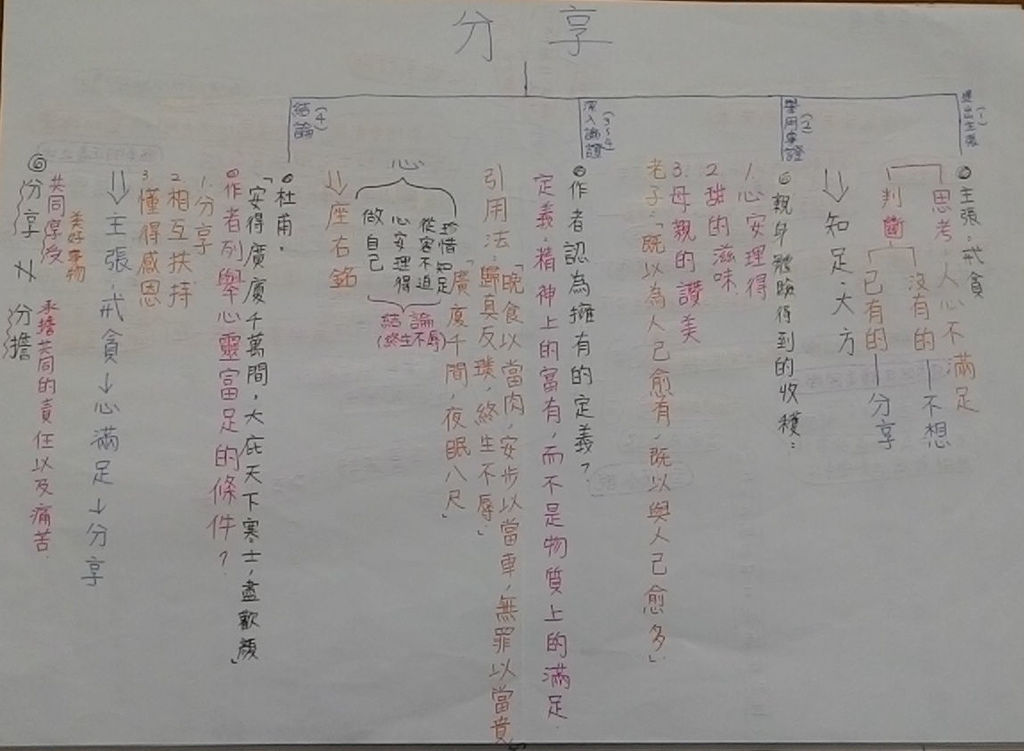 分享
提出主張(1)
◎主張:戒貪
思考:人心不滿足
判斷
沒有的—不想
已有的—分享
⇒知足、大方
舉用事證(2)
◎親身體驗得到的收穫:
1.心安理得
2.甜的滋味
3.母親的讚美
老子:「既以為人己愈有,既以與人己愈多」
深入論證(3~4)
◎作者認為擁有的定義?
定義:精神上的富有,而不是物質上的滿足.
引用法:
「晚食以當肉,安步以當車,無罪以當貴
歸真反璞,終生不辱」
「廣廈千間,夜眠八尺」
心
珍惜知足
從容不迫
心安理得
做自己
結論
(終生不辱)
⇒座右銘
結論(4)
◎杜甫:
「安得廣廈千萬間,大庇天下寒士,盡歡顏」
◎作者列舉心靈富足的條件?
1.分享
2.相互扶持
3.懂得感恩
⇒主張:戒貪→心滿足→分享
◎分享≠分擔
共同享受
美好事物
承擔共同的責任以及痛苦.